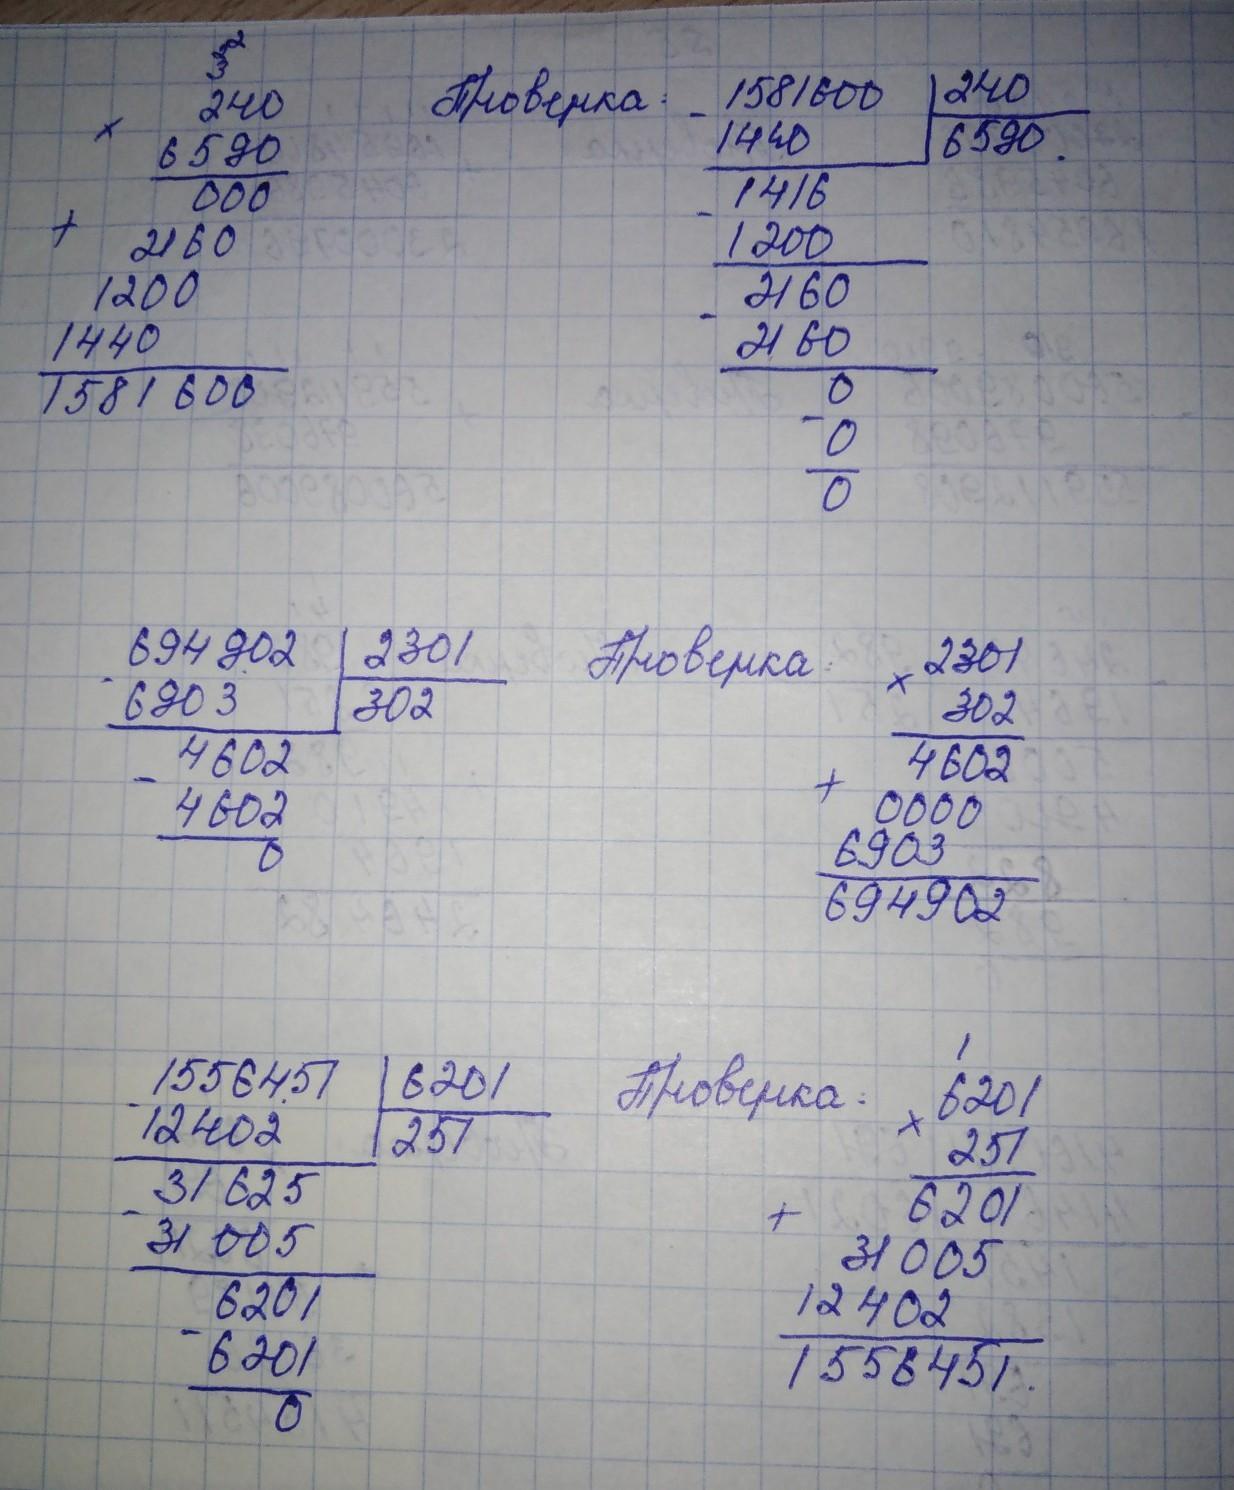 32
3
240
× 6590
000
+ 2160
1200
1440
1581600
Проверка:
- 1581600 | 240
1440 6590.
- 1416
1200
- 2160
2160
0
- 0
0
- 694902 | 2301
6903 302
- 4602
4602
0
Проверка:
× 2301
302
4602
+ 0000
6903
694902
- 1556451 | 6201
12402 251
- 31625
31005
- 6201
6201
0
Проверка:
1
× 6201
251
+ 6201
31005
12402
1556451.